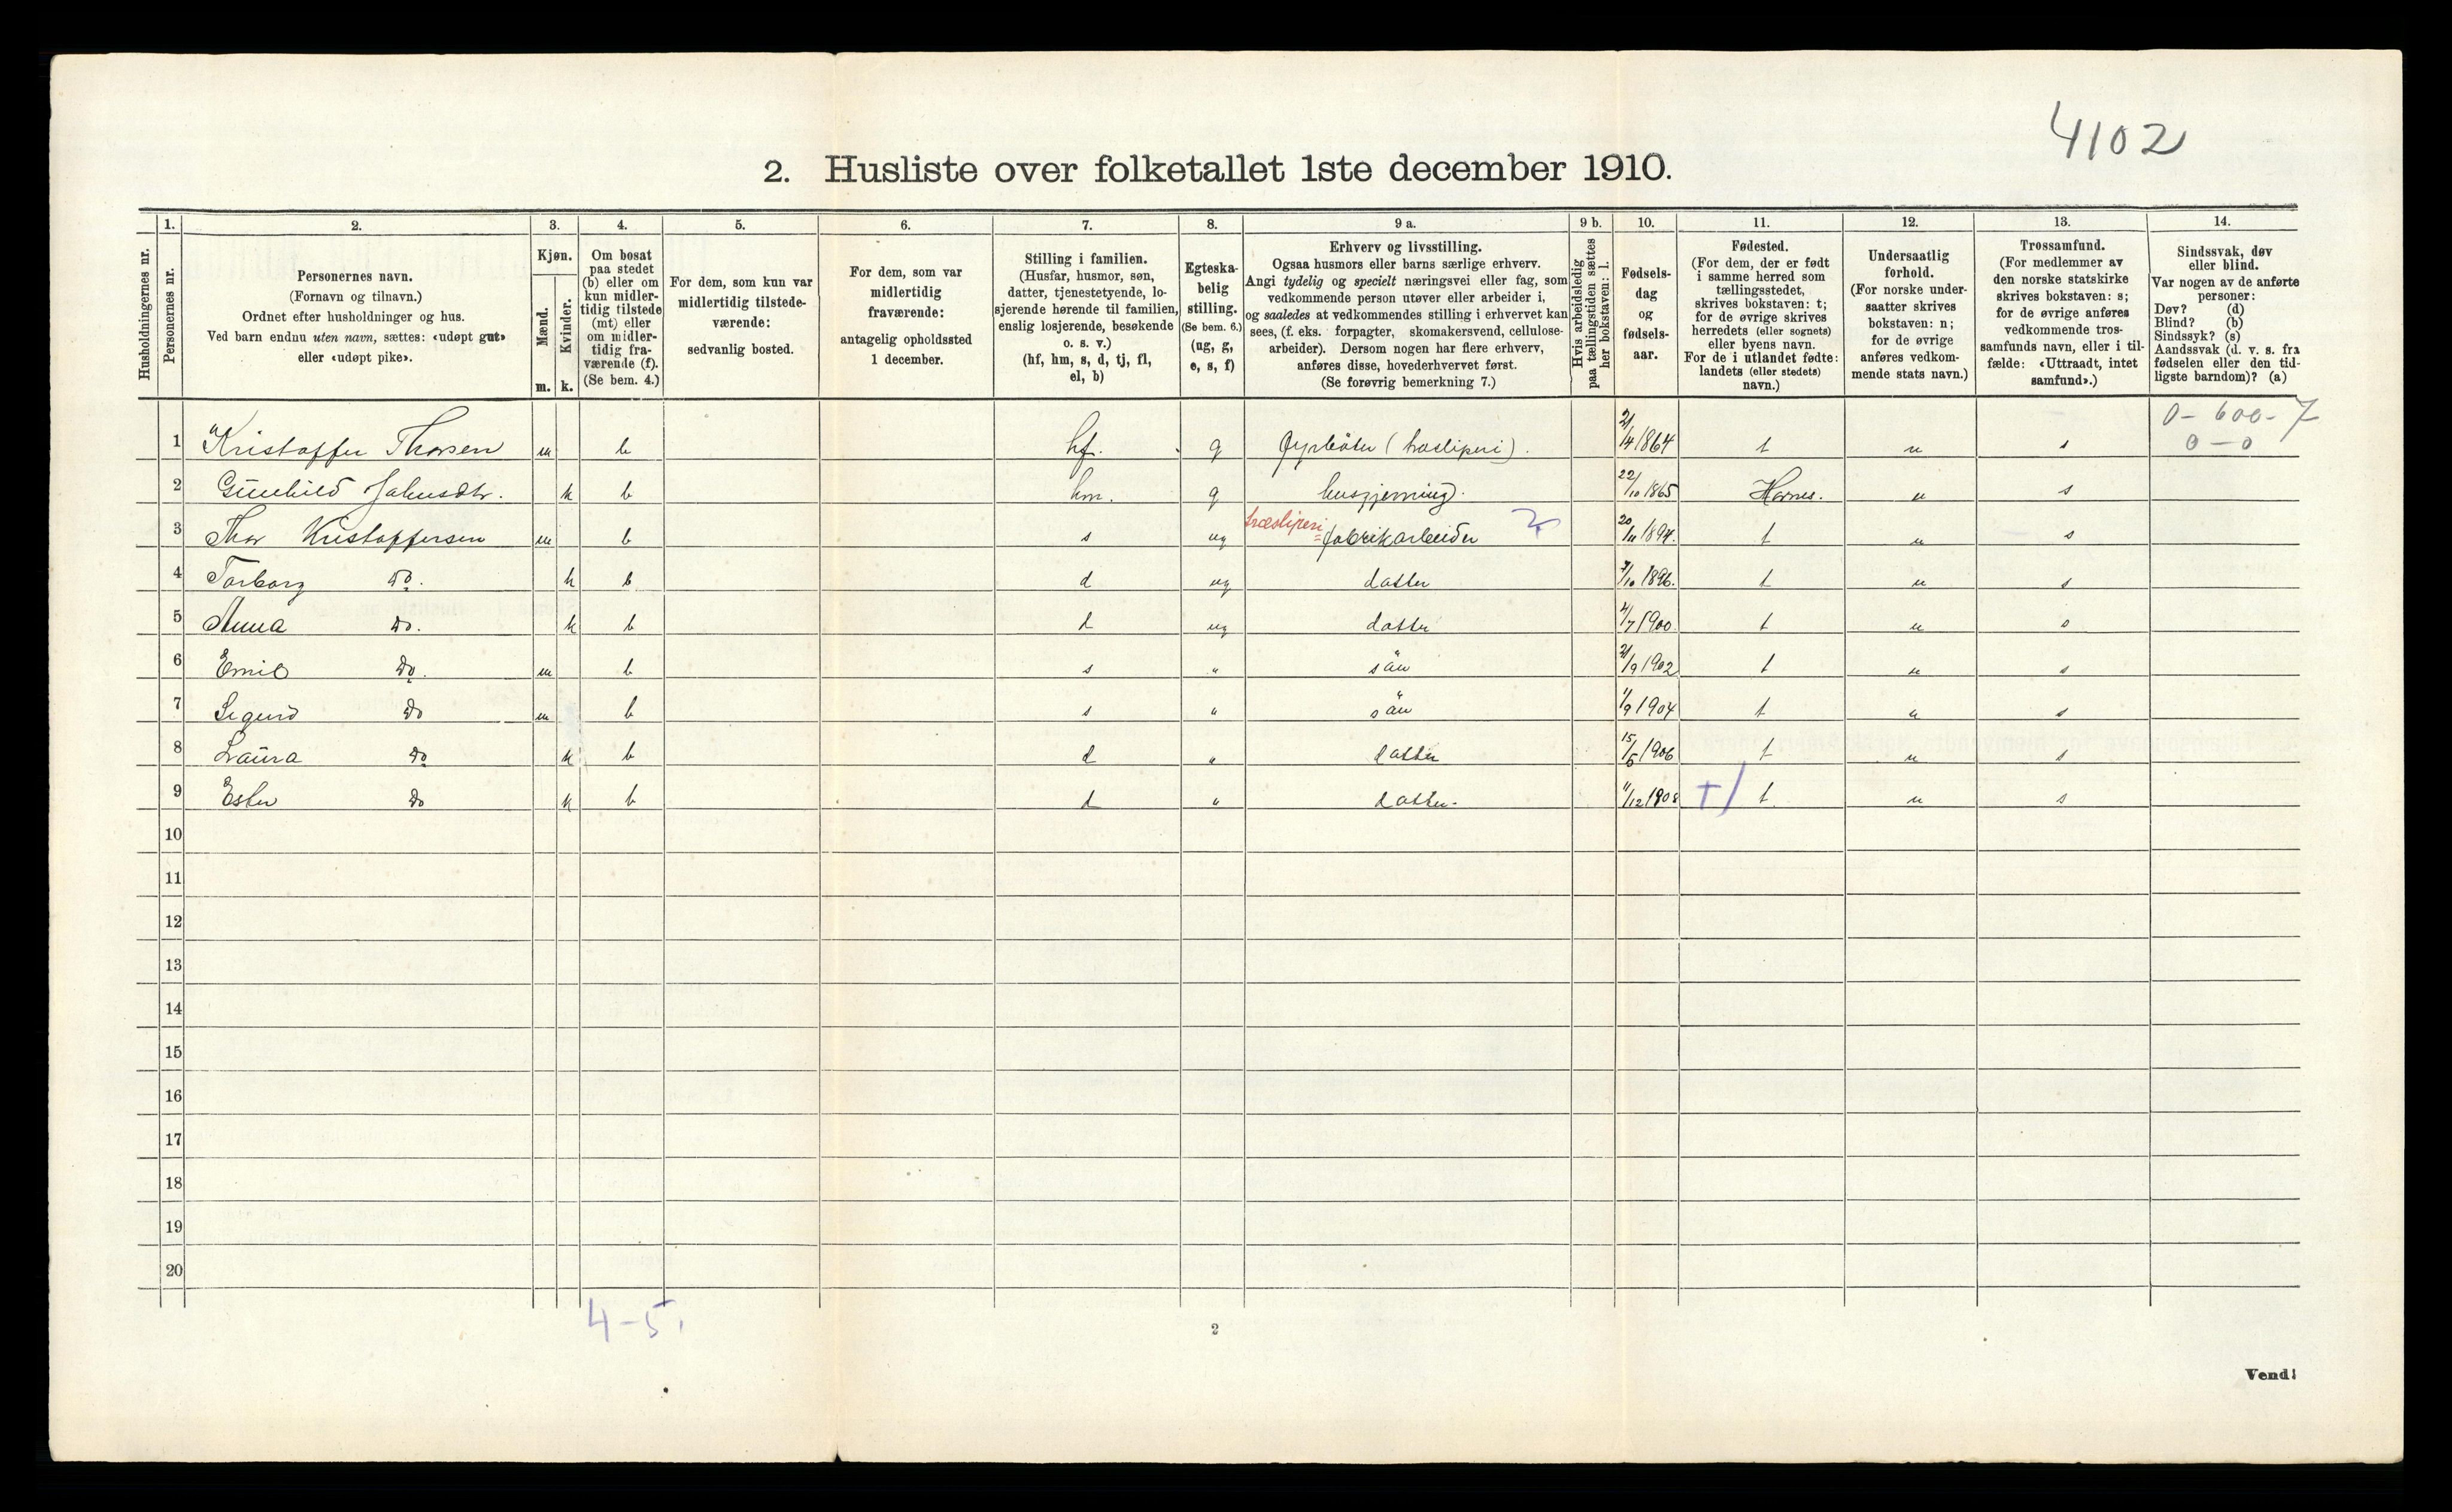 4102
2. Husliste over folketallet 1ste december 1910.
Husholdningernes nr.
1.
Personernes nr.
2.
Personernes navn.
(Fornavn og tilnavn.)
Ordnet efter husholdninger og hus.
Ved barn endnu uten navn, sættes: «udøpt gut»
eller «udøpt pike».
3.
Kjøn.
Mænd.
Kvinder.
m. k.
4.
Om bosat
paa stedet
(b) eller om
kun midler-
tidig tilstede
(mt) eller
om midler-
tidig fra-
værende (f).
(Se bem. 4.)
5.
For dem, som kun var
midlertidig tilstede-
værende:
sedvanlig bosted.
6.
For dem, som var
midlertidig
fraværende:
antagelig opholdssted
1 december.
7.
Stilling i familien.
(Husfar, husmor, søn,
datter, tjenestetyende, lo-
sjerende hørende til familien,
enslig losjerende, besøkende
o. s. v.)
(hf, hm, s, d, tj, fl,
el, b)
8.
Egteska-
belig
stilling.
(Se bem. 6.)
(ug, g,
e, s, f)
9 a.
Erhverv og livsstilling.
Ogsaa husmors eller barns særlige erhverv.
Angi tydelig og specielt næringsvei eller fag, som
vedkommende person utøver eller arbeider i,
og saaledes at vedkommendes stilling i erhvervet kan
sees, (f. eks. forpagter, skomakersvend, cellulose-
arbeider). Dersom nogen har flere erhverv,
anføres disse, hovederhvervet først.
(Se forøvrig bemerkning 7.)
9 b.
Hvis arbeidsledig
paa tællingstiden sættes
her bokstaven: l.
10.
Fødsels-
dag
og
fødsels-
aar.
11.
Fødested.
(For dem, der er født
i samme herred som
tællingsstedet,
skrives bokstaven: t;
for de øvrige skrives
herredets (eller sognets)
eller byens navn.
For de i utlandet fødte:
landets (eller stedets)
navn.)
12.
Undersaatlig
forhold.
(For norske under-
saatter skrives
bokstaven: n;
for de øvrige
anføres vedkom-
mende stats navn.)
13.
Trossamfund.
(For medlemmer av
den norske statskirke
skrives bokstaven: s;
for de øvrige anføres
vedkommende tros-
samfunds navn, eller i til-
fælde: «Uttraadt, intet
samfund».)
14.
Sindssvak, døv
eller blind.
Var nogen av de anførte
personer:
Døv? (d)
Blind? (b)
Sindssyk? (s)
Aandssvak (d. v. s. fra
fødselen eller den tid-
ligste barndom)? (a)
0 - 600 - 7
0 - 0
1 Kristoffer Thorsen m b hf. g fyrbøter (træsliperi). 21/4 1864 t n s
2 Gunhild Johnsdtr. k b hm. g husgjerning. 22/10 1865 Hornes. n s
træsliperi
3 Thor Kristoffersen m b s ug fabrikarbeider 20/11 1894. t n s
4 Torborg Do. k b d ug datter 7/10 1896. t n s
5 Anna Do. k b d ug datter 4/7 1900. t n s
6 Emil Do. m b s " sön 21/9 1902 t n s
7 Sigurd Do m b s " sön 1/9 1904 t n s
8 Laura Do k b d " datter 15/5 1906 t n s
9 Ester Do k b d " datter. 11/12 1908 t n s
10
11
12
13
14
15
16
17
18
19
20
4-5.
2
Vend!